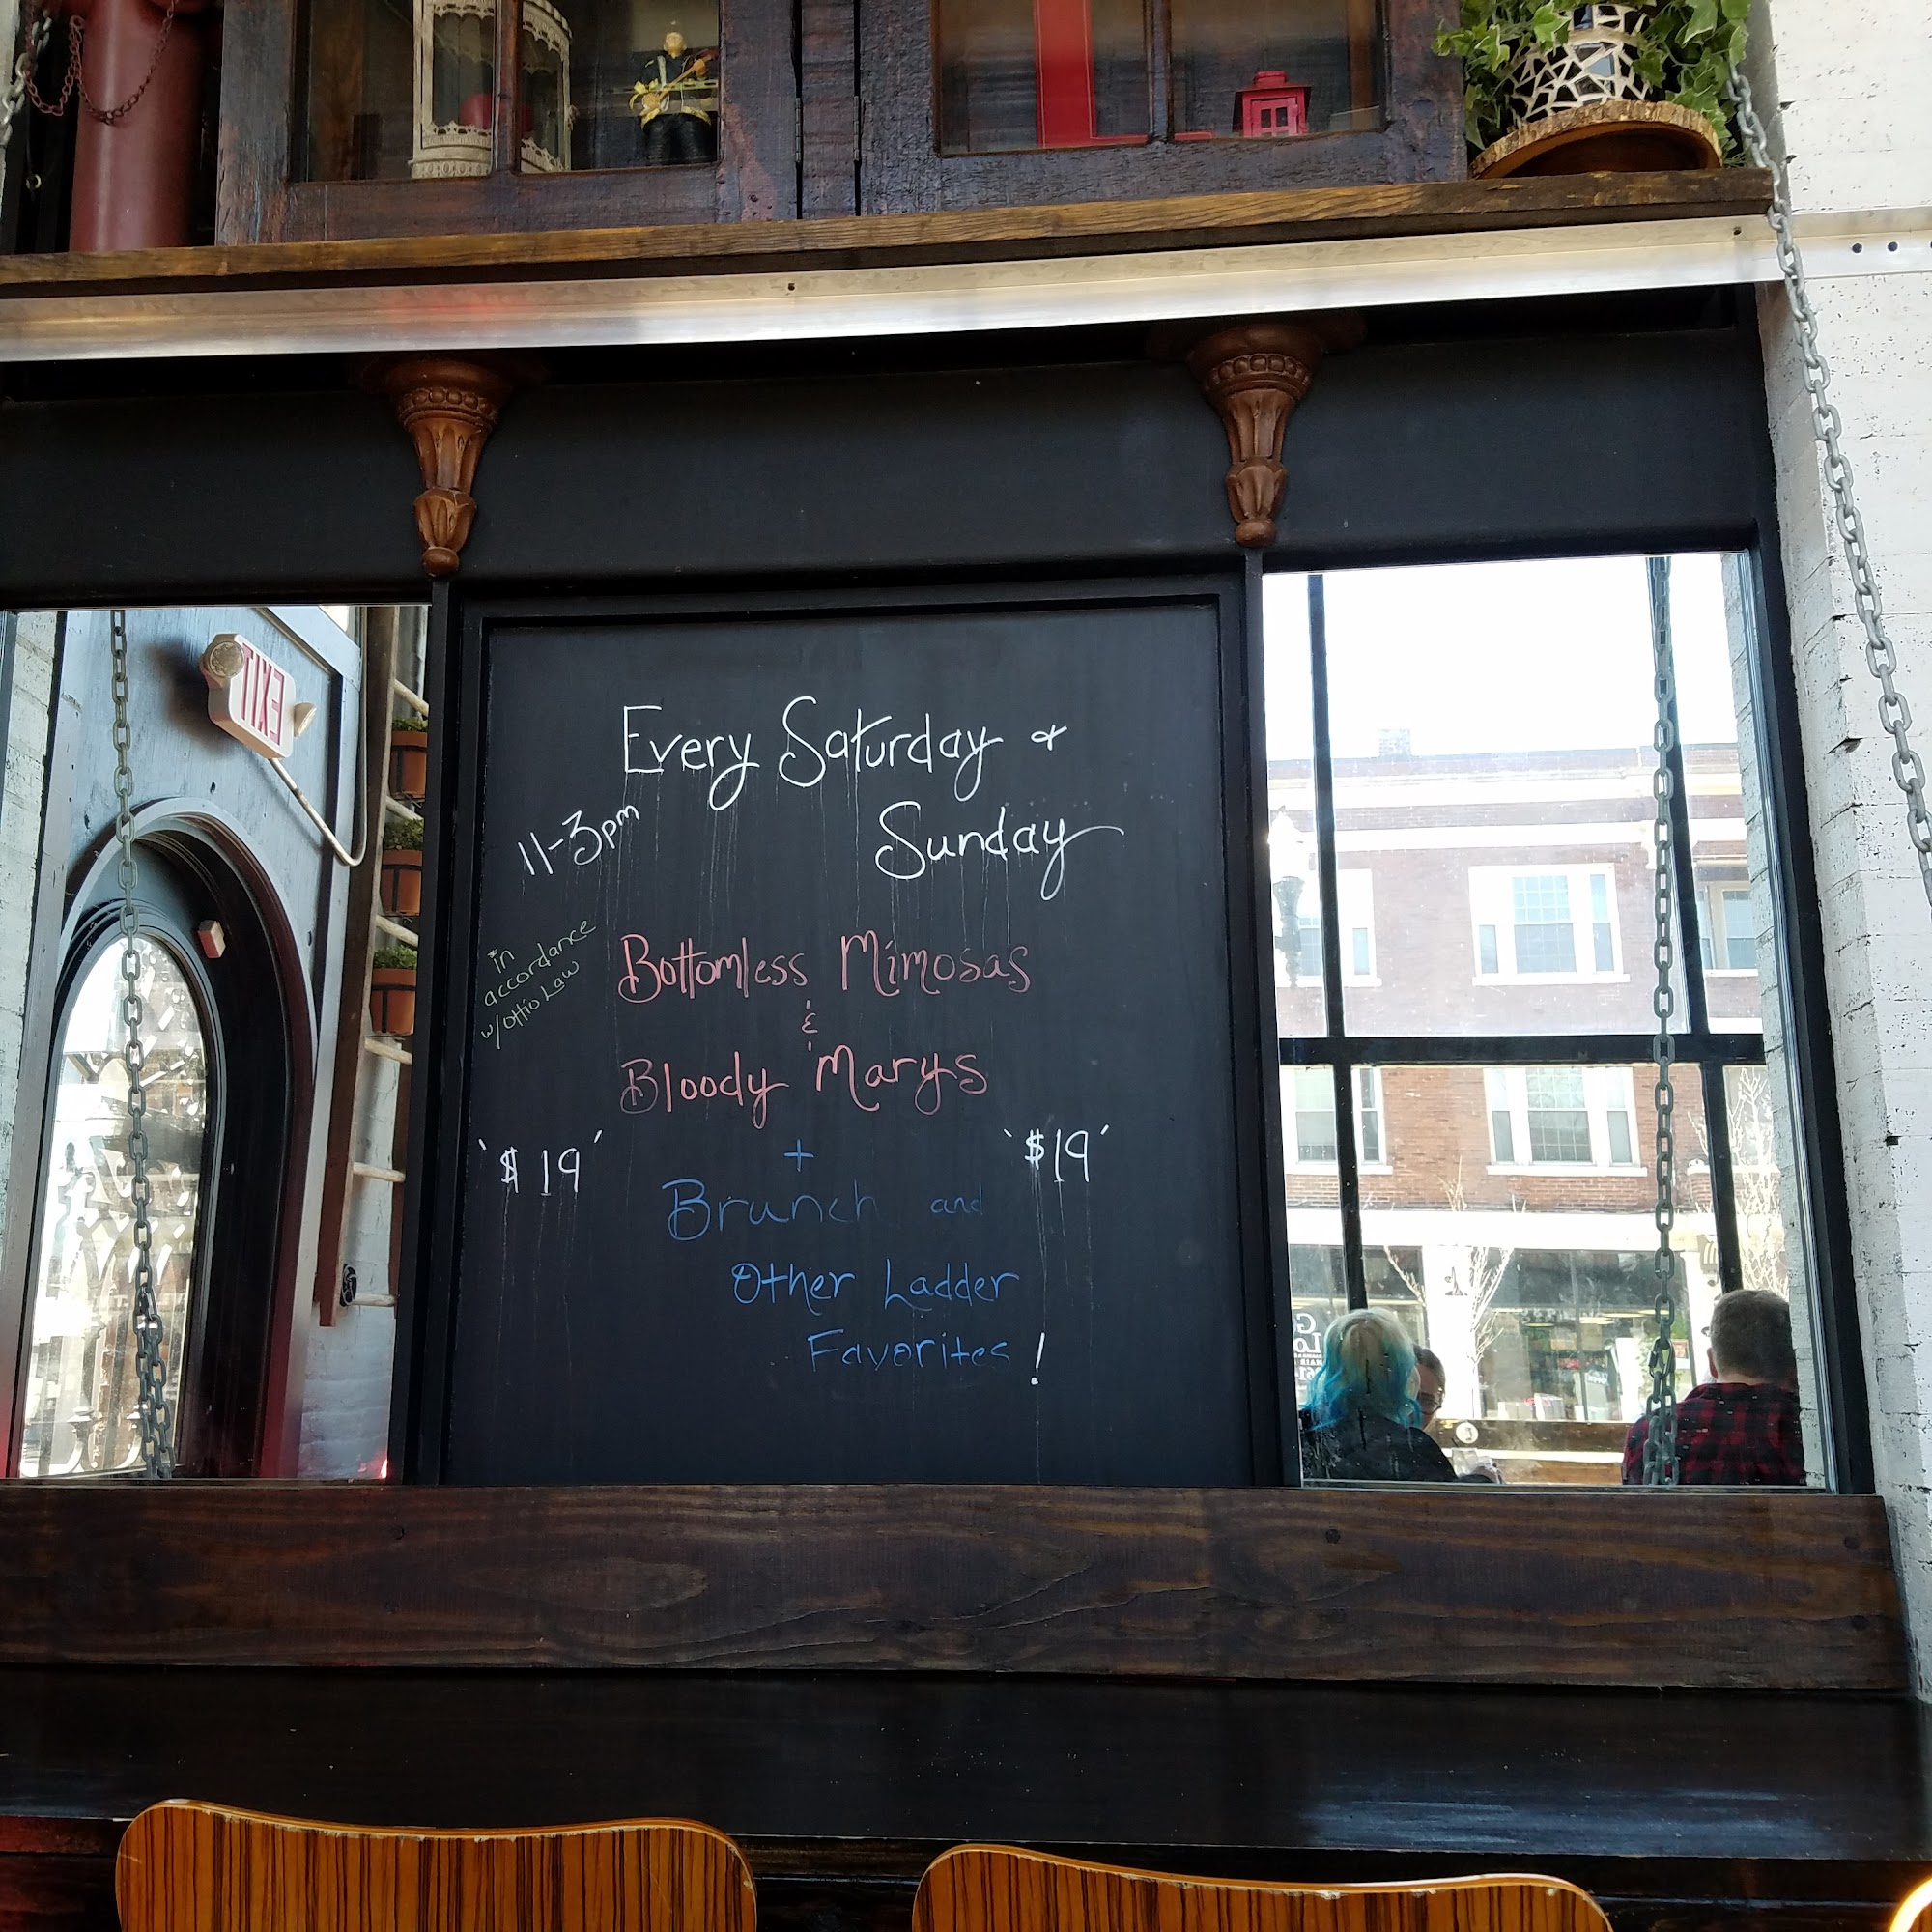 EXIT
Every Saturday &
Sunday
11-3pm
in
accordance
w/ OHio Law
Bottomless Mimosas
&
Bloody Marys
$19
$19
+
Brunch and
Other Ladder
Favorites!